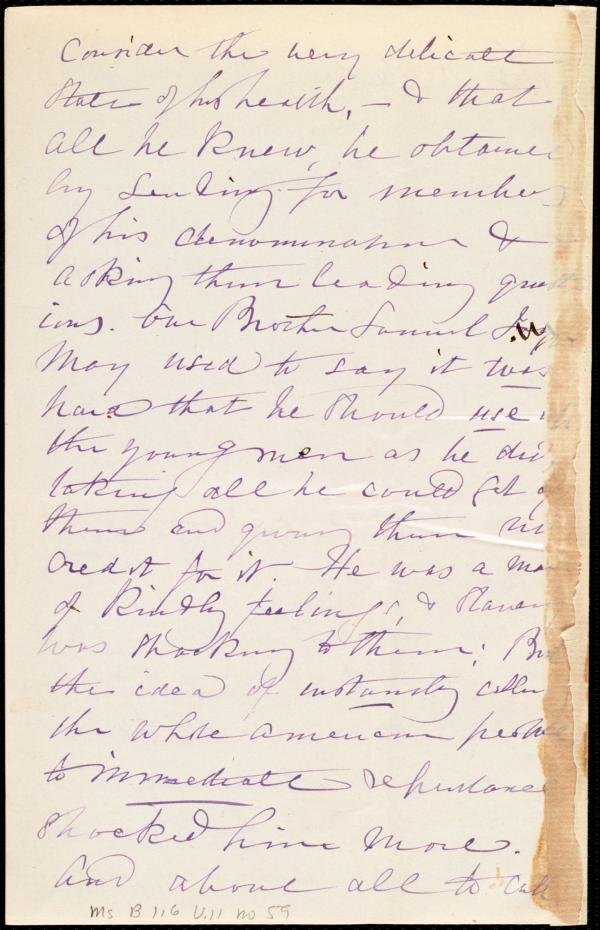 Consider the very delicate
state of his health, — & that
all he knew, he obtained
by sending for members
of his denomination &
asking them leading quest
ions. Our Brother Samuel
May used to say it was
hard that he should use
the young men as he did
taking all he could get of
them and giving them no
credit for it. He was a man
of kindly feelings, & slavery
was shocking to them; But
the idea of instantly calling
the whole American people
to immediate repentance
shocked him more.
And above all to call
Ms B 1.6 V.11 no 59